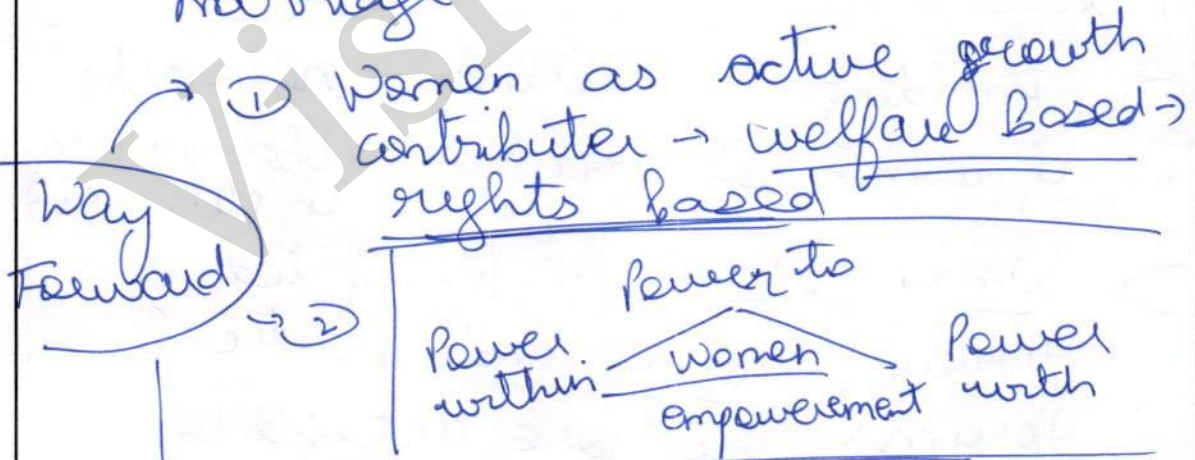 ① Women as active growth
contributer → welfare based →
rights based
Way
Forward
→ ②
Power to
Power within
Women empowerment
Power with